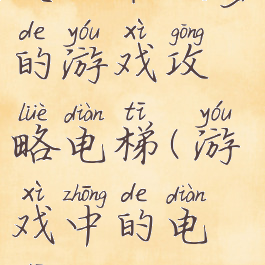 de yóu xì gōng
的游戏攻
lüè diàn tī yóu
略电梯(游
xì zhōng de diàn
戏中的电